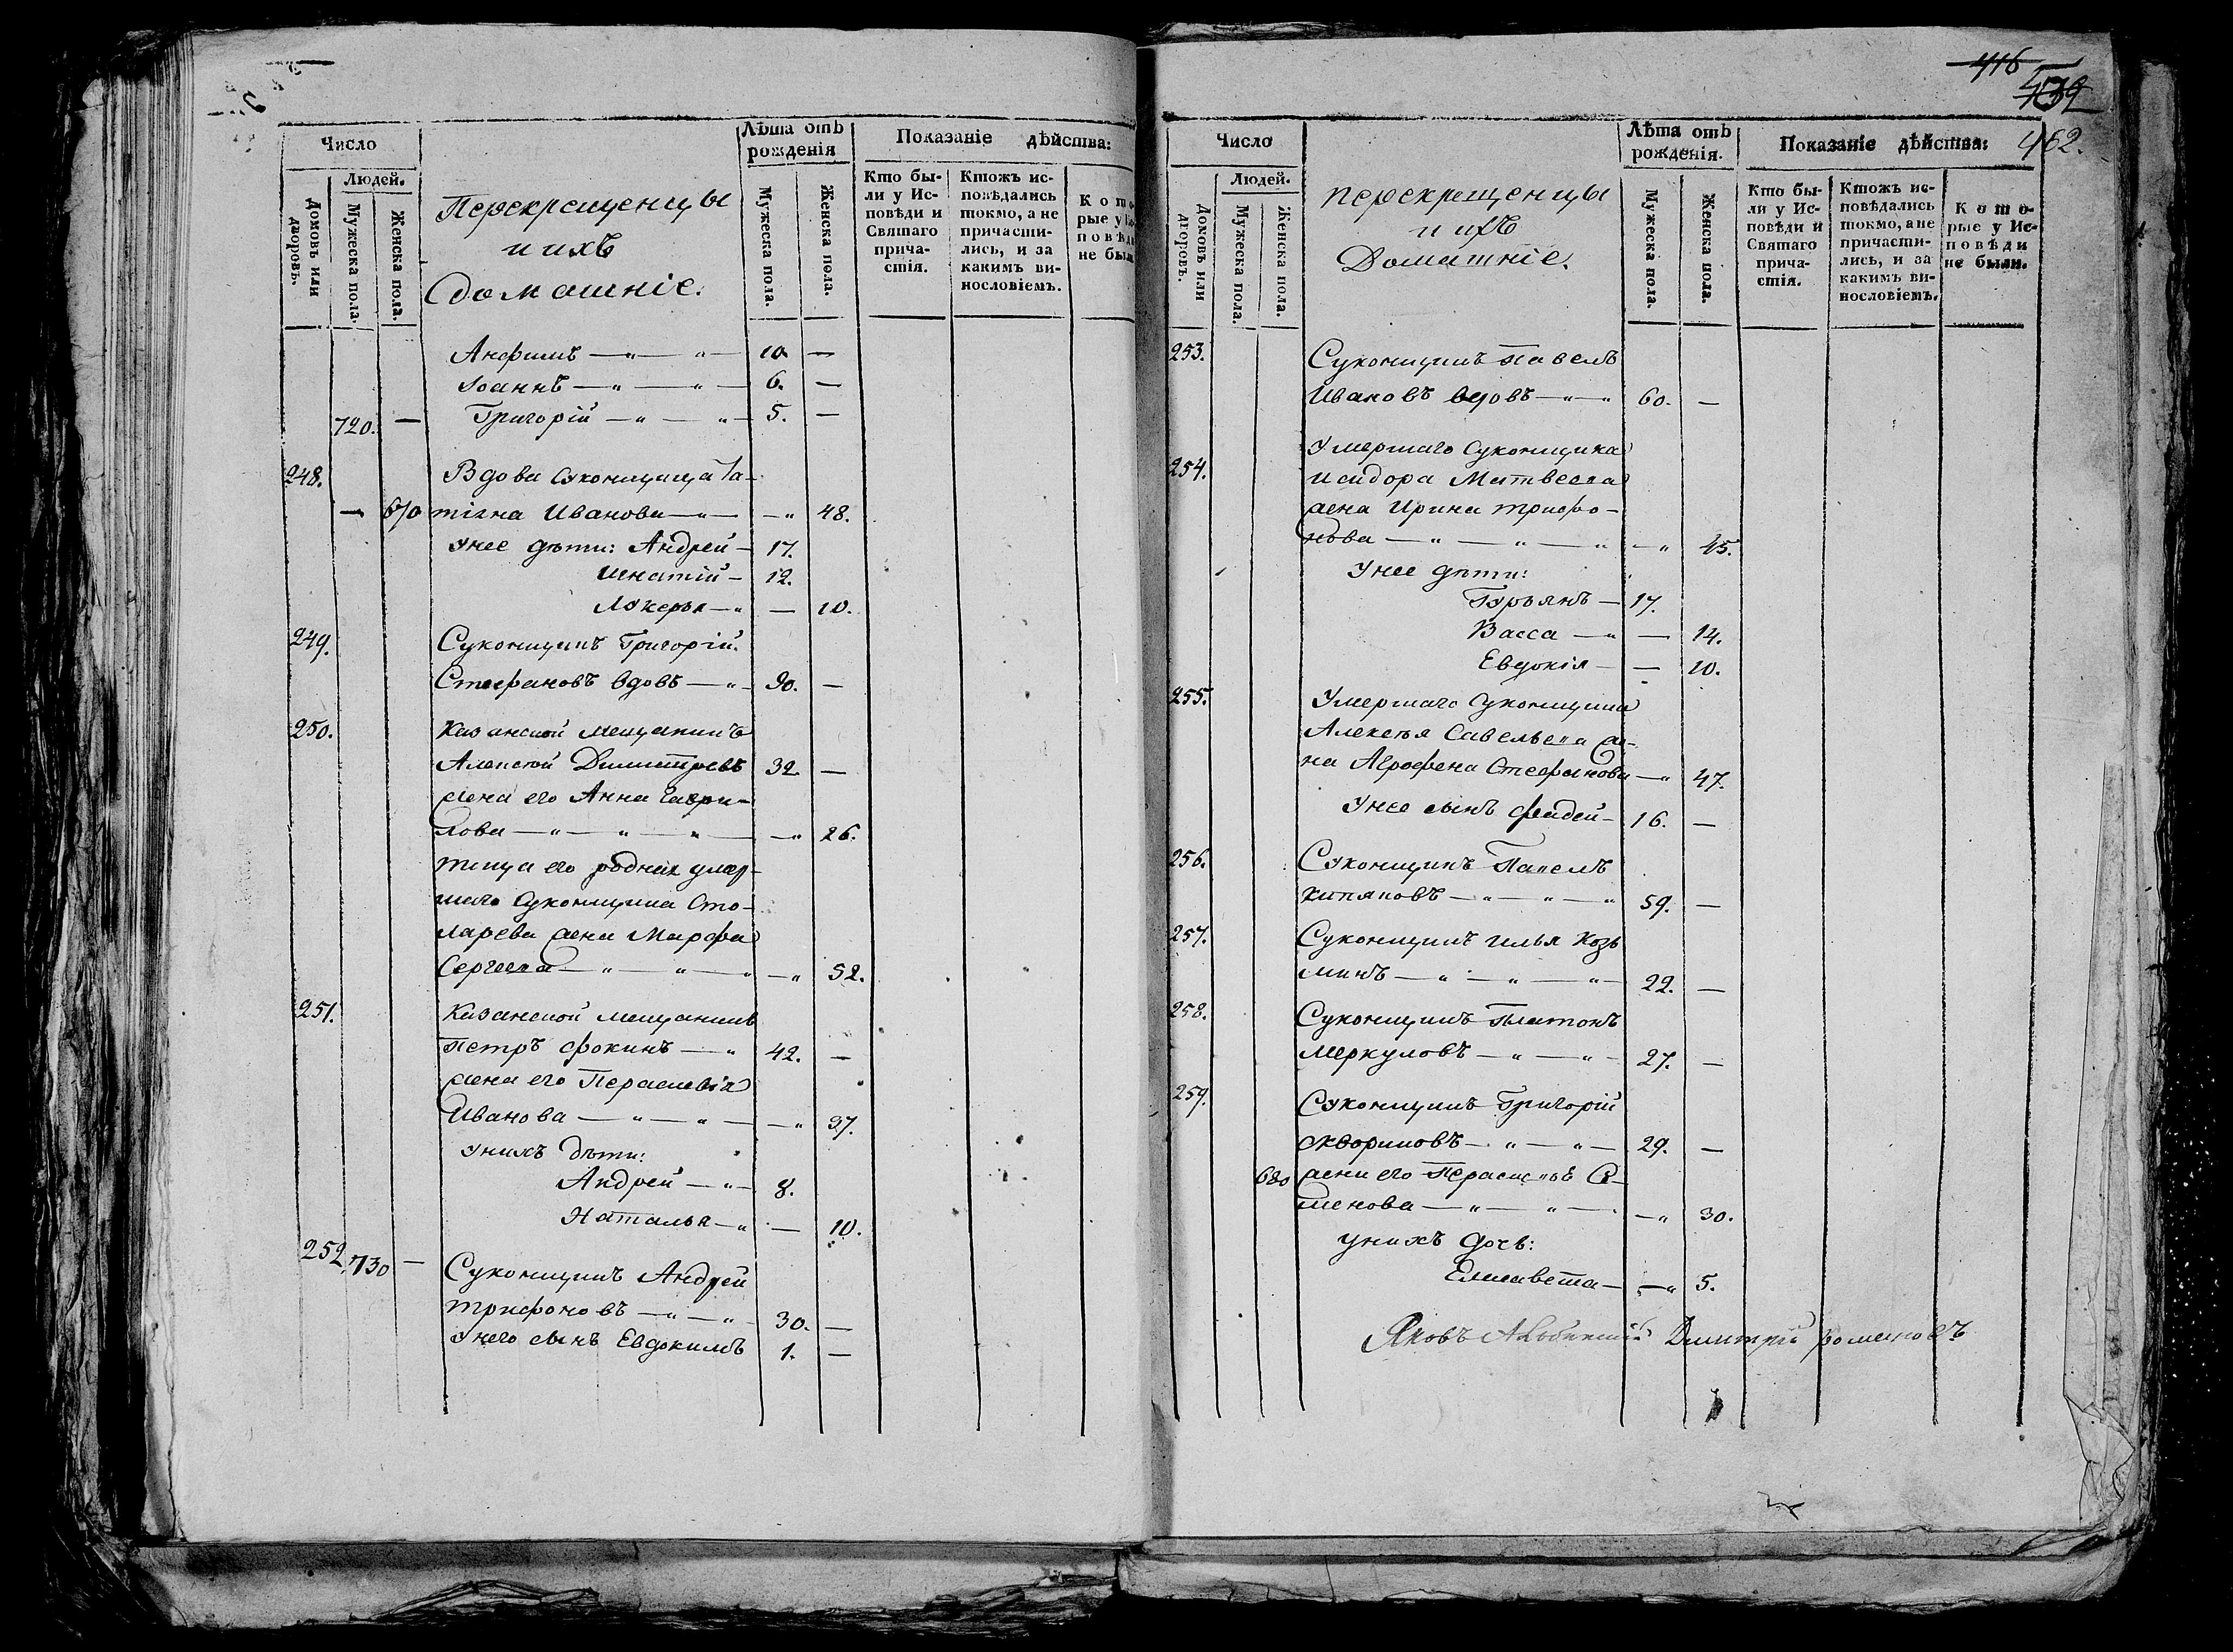 Число
Людей.
Домовъ или дворовъ.
Мужеска пола.
Женска пола.
Перекрещенцы
и ихъ
домашніе.
Лѣта отъ рожденія
Мужеска пола.
Женска пола.
Показаніе дѣйства:
Кто бы-
ли у Ис-
повѣди и
Святаго
прича-
стія.
Ктожъ ис-
повѣдались
токмо, а не
причасти-
лись, и за
какимъ ви-
нословіемъ.
Анфимъ — " — " — 10. —
Іоаннъ — " — " — 6. —
720. — Григорій — " — " — 5. —
248. Вдова суконщица Та-
— 670 тіана Иванова — " — — " 48.
У нее дѣти: Андрей — 17.
Игнатій — 12.
Лукерья — " — 10.
249. Суконщикъ Григорій
Стефановъ вдовъ — " — 90. —
250. Казанской мещанинъ
Алексѣй Димитревъ 32. —
жена его Анна Гаври-
лова — " — " — " — — " 26.
теща его родная умер-
шаго суконщика Сто-
ларева жена Марфа
Сергеева — " — " — " — " 52.
251. Казанской мещанинъ
Петръ Фокинъ — " 42. —
жена его Парасковія
Иванова — " — " — — " 37.
У нихъ дѣти:
Андрей — " — 8.
Наталья — " — 10.
252. 730 — Суконщикъ Андрей
Трифоновъ — " — " — 30. —
У него сынъ Евдокимъ 1. —
416
439
462.
Число
Людей.
Домовъ или дворовъ.
Мужеска пола.
Женска пола.
перекрещенцы
и ихъ
Домашніе.
Лѣта отъ рожденія.
Мужеска пола.
Женска пола.
Показаніе дѣйства:
Кто бы-
ли у Ис-
повѣди и
Святаго
прича-
стія.
Ктожъ ис-
повѣдались
токмо, а не
причасти-
лись, и за
какимъ ви-
нословіемъ.
Кото-
рые у Ис-
повѣди
не были.
253. Суконщикъ Павелъ
Ивановъ вдовъ — " — " 60. —
Умершаго суконщика
254. Исидора Матвеева
жена Ирина Трифо-
нова — " — " — " — " 45.
У нее дѣти:
Гурьянъ — 17.
Васса — " — 14.
Евдокія — — 10.
255. Умершаго суконщика
Алексѣя Савельева же-
на Аграфена Стефанова — " 47.
У нее сынъ Фадей — 16. —
256. Суконщикъ Павелъ
— " — " — " 59. —
257. Суконщикъ Илья Козь
минъ — " — " — " — 22. —
258. Суконщикъ Платонъ
Меркуловъ — " — " — 27. —
259. Суконщикъ Григорій
Скворцовъ — " — " — 29. —
680 жена его Се-
менова — " — " — — " 30.
У нихъ дочь:
Елисавета — — " 5.
Яковъ Димитрій